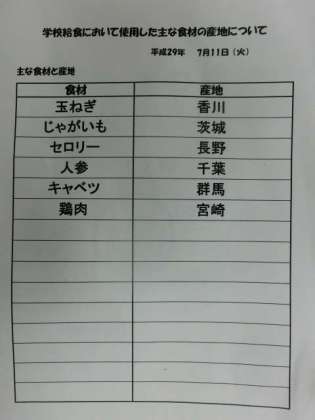 学校給食において使用した主な食材の産地について
平成29年 7月11日（火）
主な食材と産地
食材 産地
玉ねぎ 香川
じゃがいも 茨城
セロリー 長野
人参 千葉
キャベツ 群馬
鶏肉 宮崎